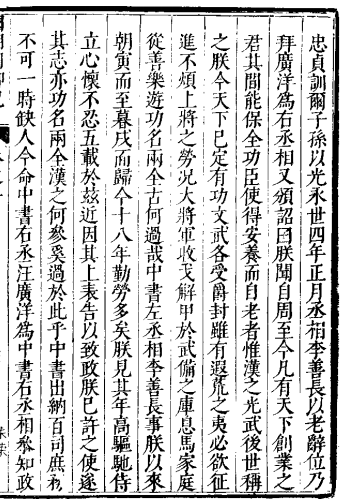 忠貞訓爾子孫以光永世四年正月丞相李善長以老辭位乃
拜廣洋爲右丞相又頒詔曰朕聞自周至今凡有天下創業之
君其間能保全功臣使得安養而自老者惟漢之光武後世稱
之朕今天下已定有功文武各受爵封雖有遐荒之夷必欲征
進不煩上將之勞况大將軍收戈解甲於武備之庫息馬家庭
從善樂遊功名兩全古何過哉中書左丞相李善長事朕以來
朝寅而至暮戌而歸今十八年勤勞多矣朕見其年高驅馳侍
立心懷不忍五載於兹近因其上表告以致政朕已許之使遂
其志亦功名兩全漢之何參奚過於此乎中書出納百司庶務
不可一時缺人今命中書右丞汪廣洋爲中書右丞相參知政